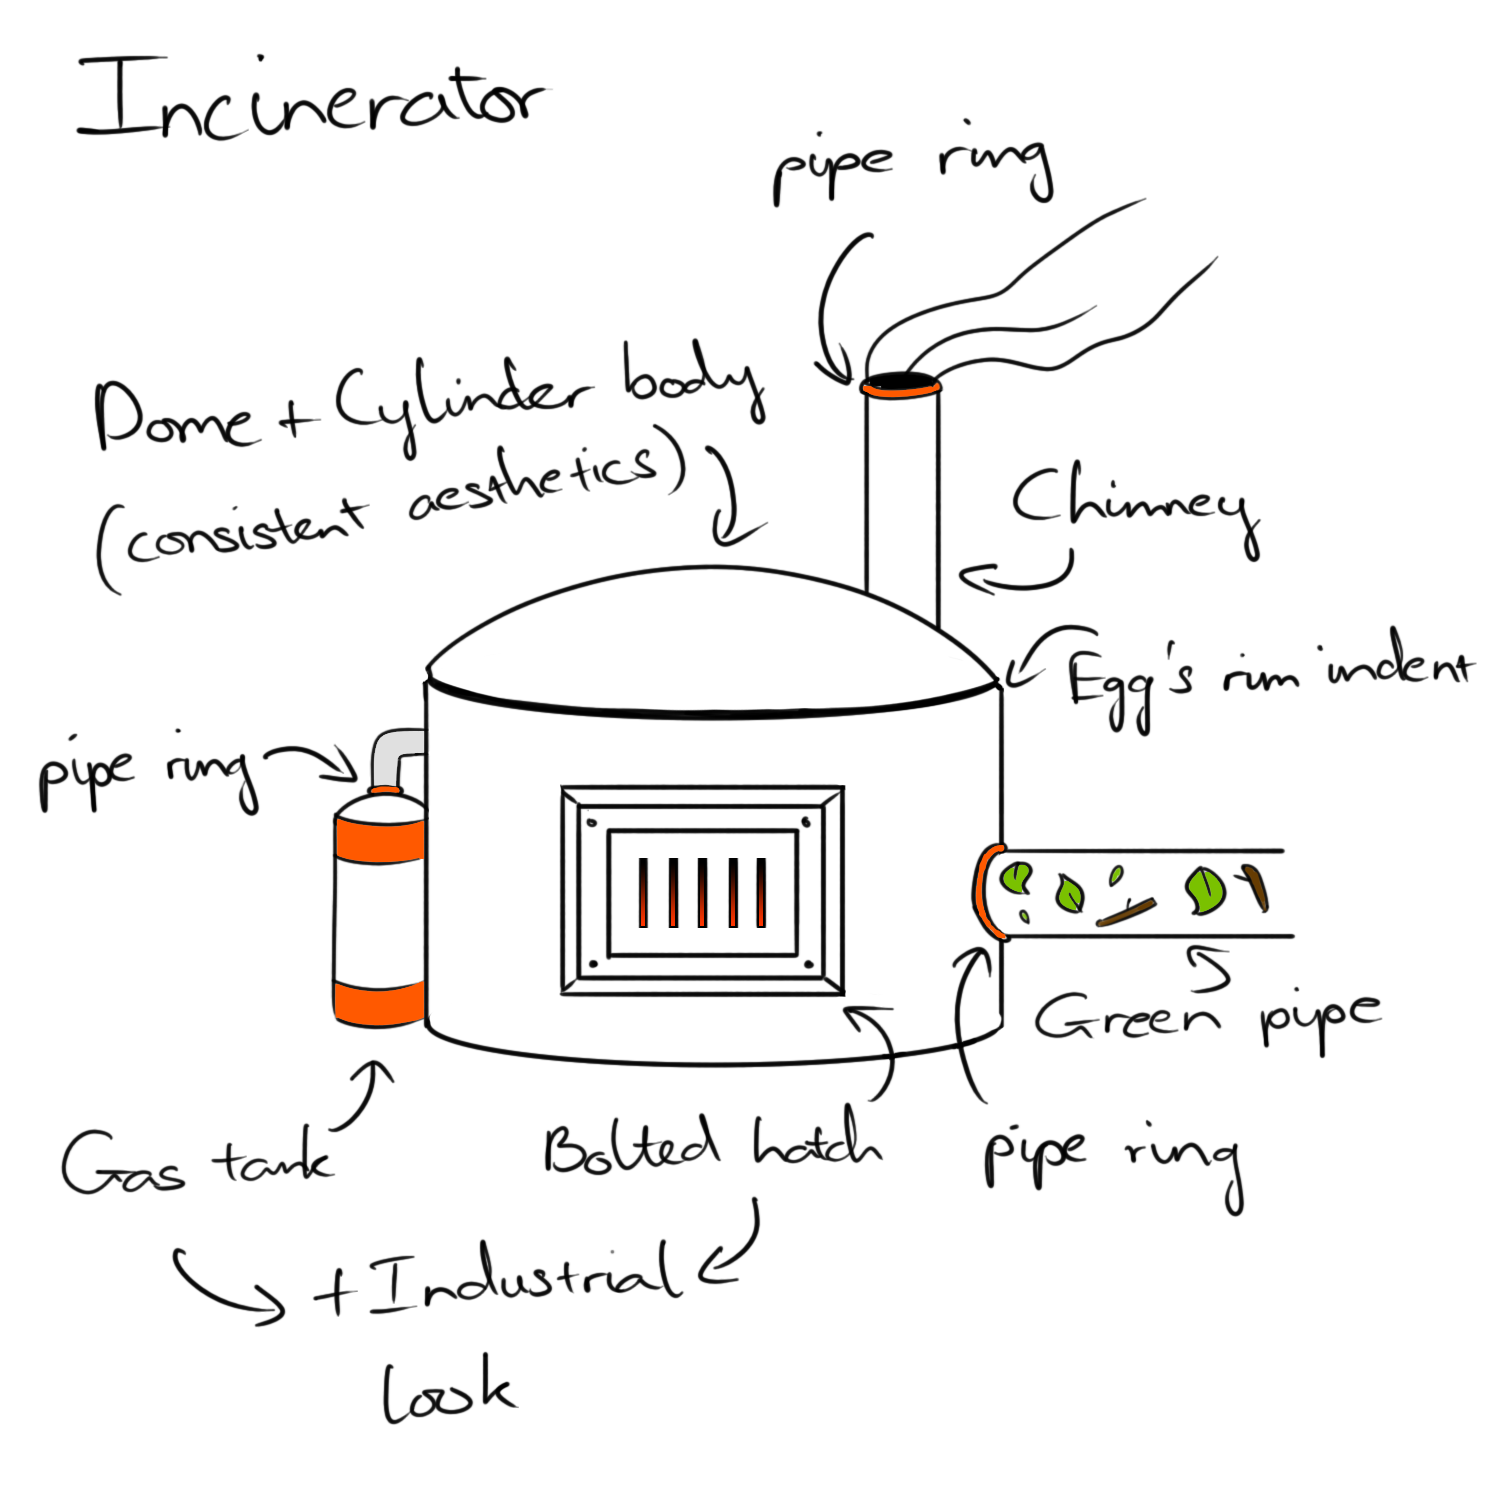 Incinerator
pipe ring
Dome + Cylinder body
(consistent aesthetics)
Chimney
Egg's rim indent
pipe ring
Green pipe
Gas tank
Bolted hatch
pipe ring
+ Industrial
look